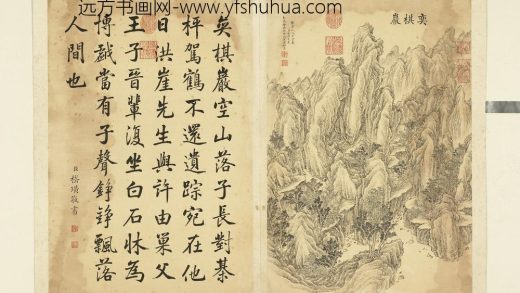 远方书画网-www.yfshuhua.com
奕棋巖
奕棋巖空山落子長對棊
枰駕鶴不還遺踪宛在他
日洪崖先生與許由巢父
王子晉輩復坐白石牀為
博戱當有子聲錚錚飄落
人間也
臣嵇璜敬書